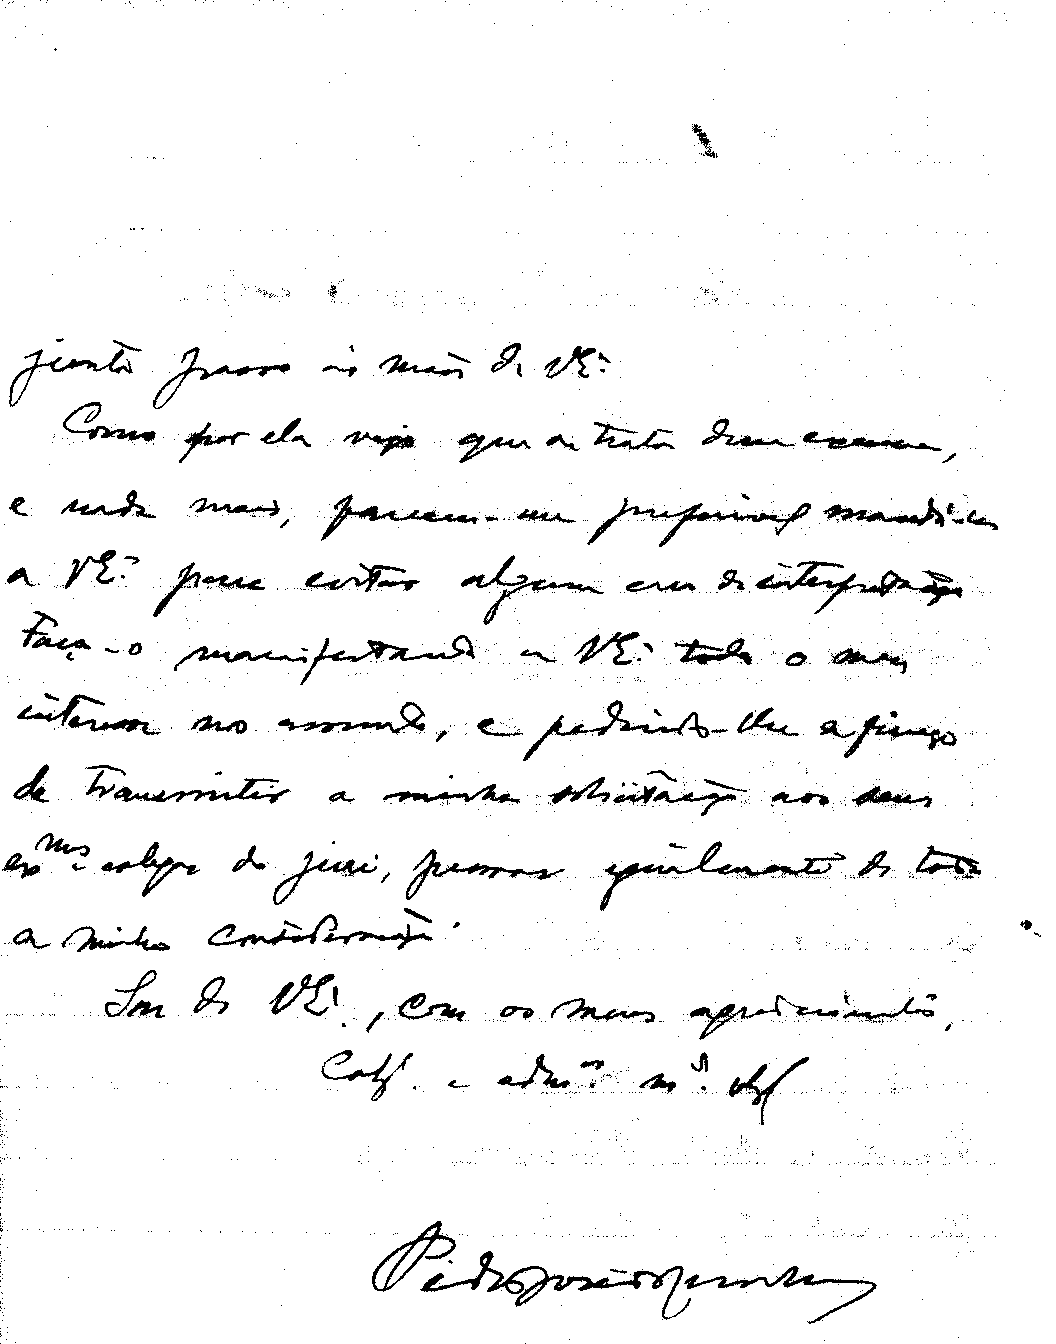 junto passo às mãos de VEª.
Como por ela veja que se trata dum exame,
e nada mais, pareceu-me preferivel mandá-la
a VEª. para evitar algum erro de interpretação
Faço-o manifestando a VEª. todo o meu
interesse no assunto, e pedindo-lhe a fineza
de transmitir a minha solicitação aos seus
exmos. colegas do juri, pessoas igualmente de toda
a minha consideração.
Sou de VEª., com os meus agradecimentos,
Colª. e admor. mto. obgº
Pedro José da Cunha